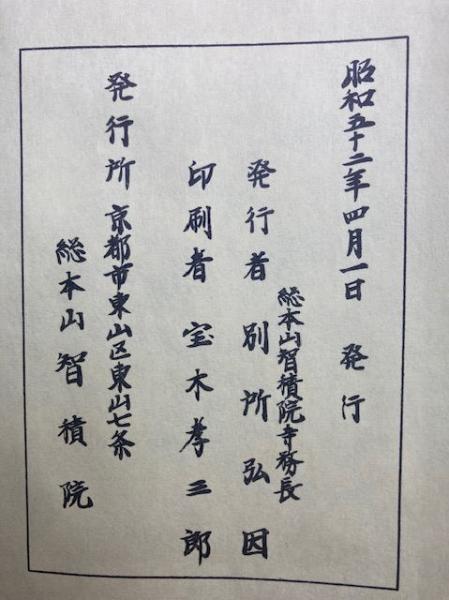 昭和五十二年四月一日 発行
総本山智積院寺務長
発行者 別所弘因
印刷者 宝木孝三郎
発行所 京都市東山区東山七条
総本山智積院